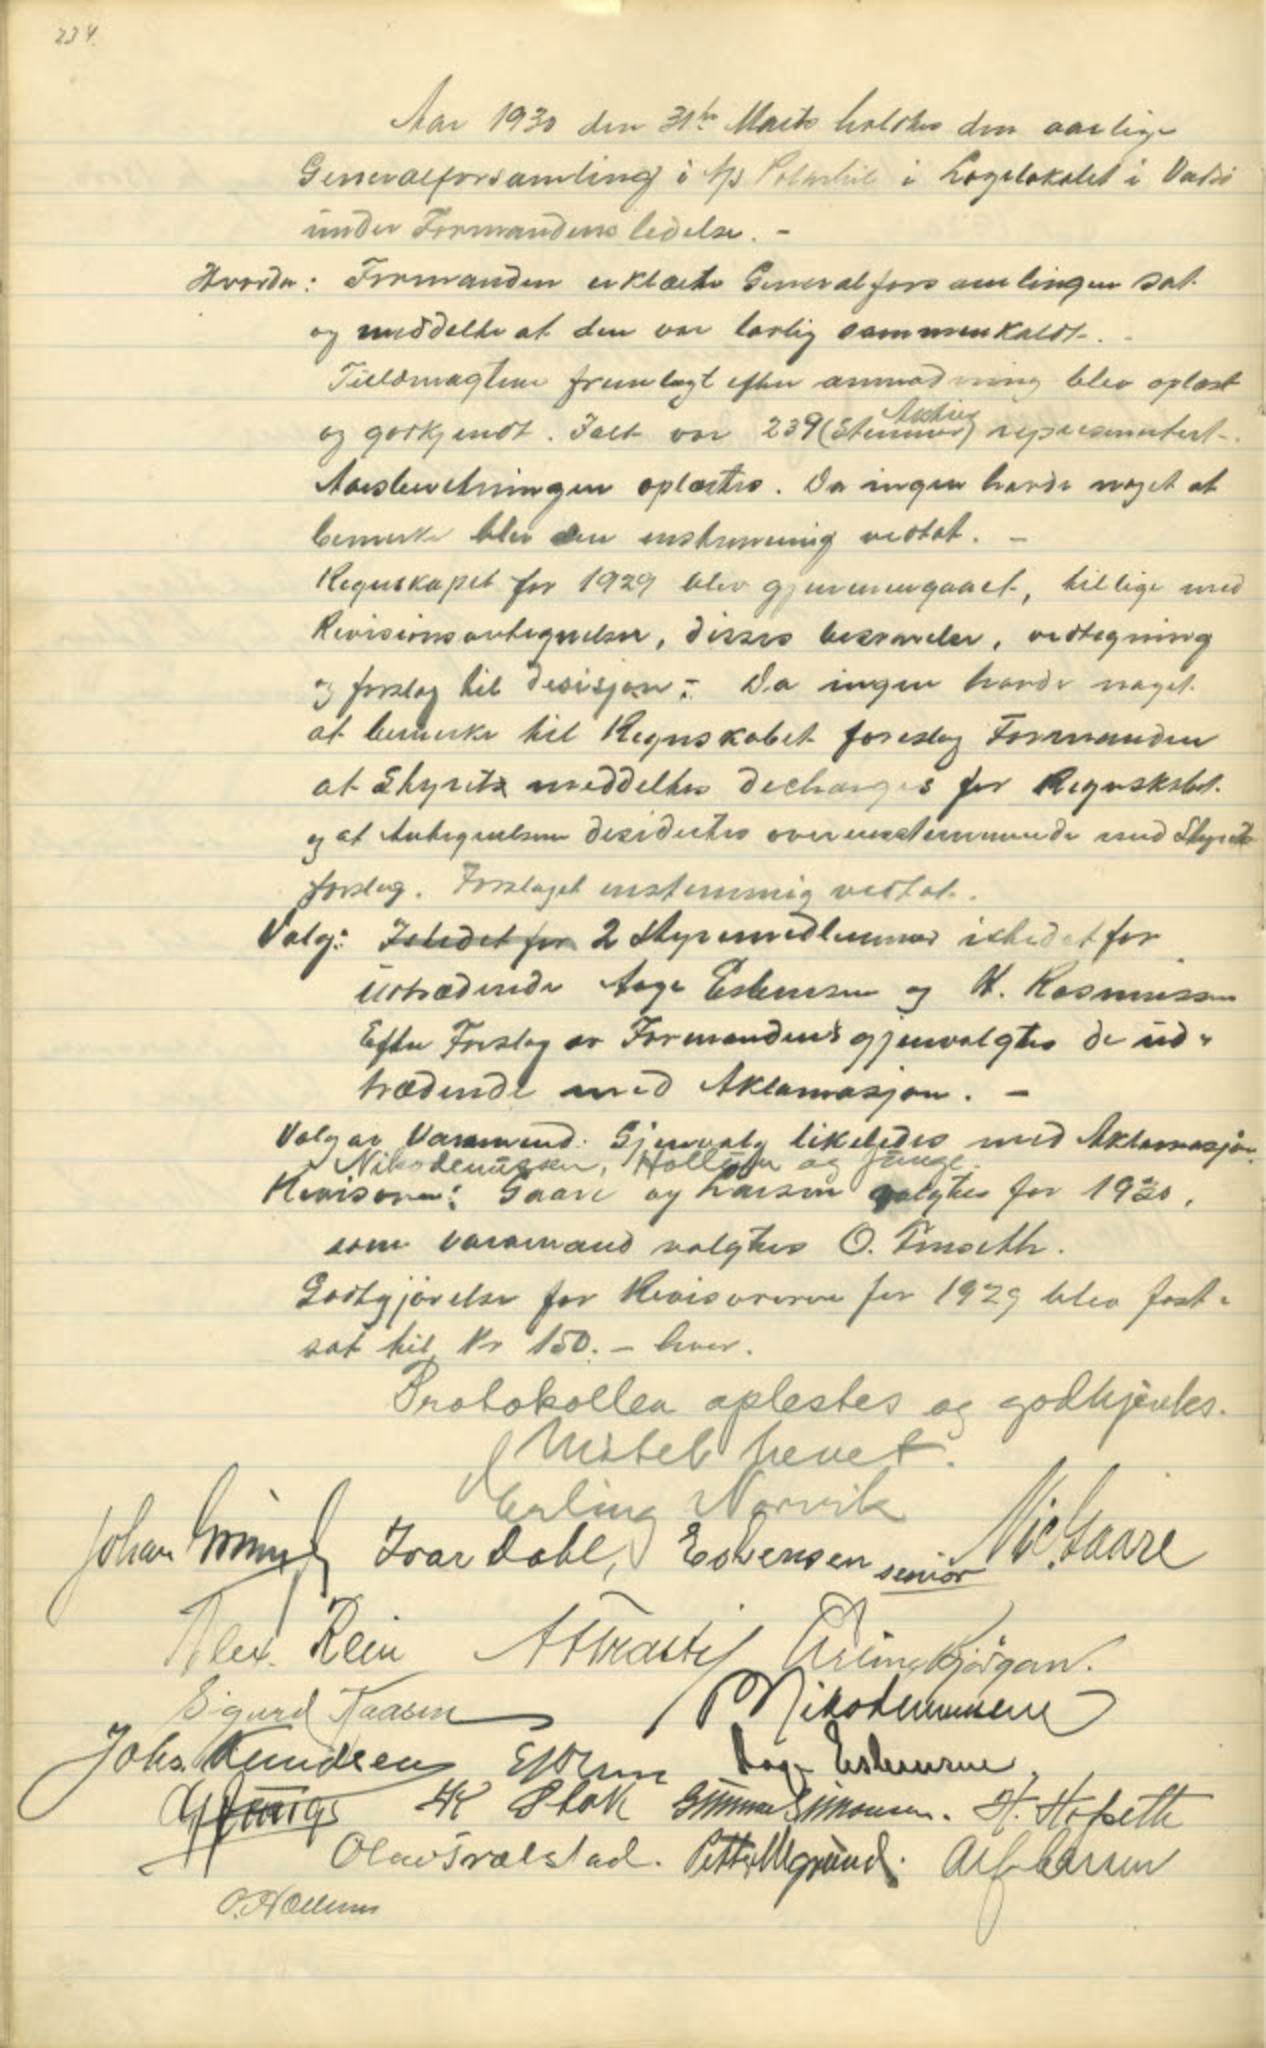 234
Aar 1930 den 31te Marts holdtes den aarlige
Generalforsamling i A/S Polarbil i Logelokalet i Vadsö
under Formandens ledelse. –
Hvorda: Formanden erklærte Generalforsamlingen sat
og meddelte at den var lovlig sammenkaldt. –
Fuldmagtene fremlagt efter anmodning blev oplæst
og godkjendt. Ialt var 239 (Stemmer) Aktier representert –.
Aarsberetningen oplæstes. Da ingen havde noget at
bemerke blev den enstemmig vedtat. –
Regnskapet for 1929 blev gjennemgaaet, tillige med
Revisionsantegnelser, disses besvarelse, vedtegning
og forslag til desisjon –. Da ingen havde noget
at bemerke til Regnskabet foreslog Formanden
at Styret meddeltes decharges for Regnskabet
og at Antegnelsene desidertes overensstemmende med Styrets
forslag. Forslaget enstemmig vedtat.
Valg: Istedet for 2 Styremedlemmer istedet for
Uttrædende Aage Esbensen og H. Rasmussen
Efter Forslag av Formanden gjenvalgtes de ud-
trædende med Aklamasjon. –
Valg av Varamænd: Gjenvalg likeledes med Aklamasjon.
Nikodemussen, Hollum og Junge.
Revisorer: Gaare og Larsen valgtes for 1930,
som varamand valgtes O. Tmseth.
Godtgjörelse for Revisorerne for 1929 blev fast-
sat til Kr 150. – hver.
Protokollen oplestes og godkjentes.
Mötet hevet.
Erling Norvik
Johan Ivar Dahl, Esbensen senior Nic. Gaare
Alex. Rein Kjörgan.
Sigurd Kaasen Nikodemussen
Johs. Knudsen Aage Esbensen
Stok Gunnar Simonsen. H. Hofseth
Olav Petter Grund. Alf Larsen
O. Hollum